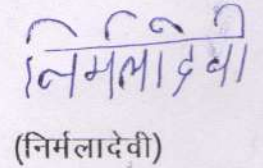 निर्मलादेवी
(निर्मलादेवी)